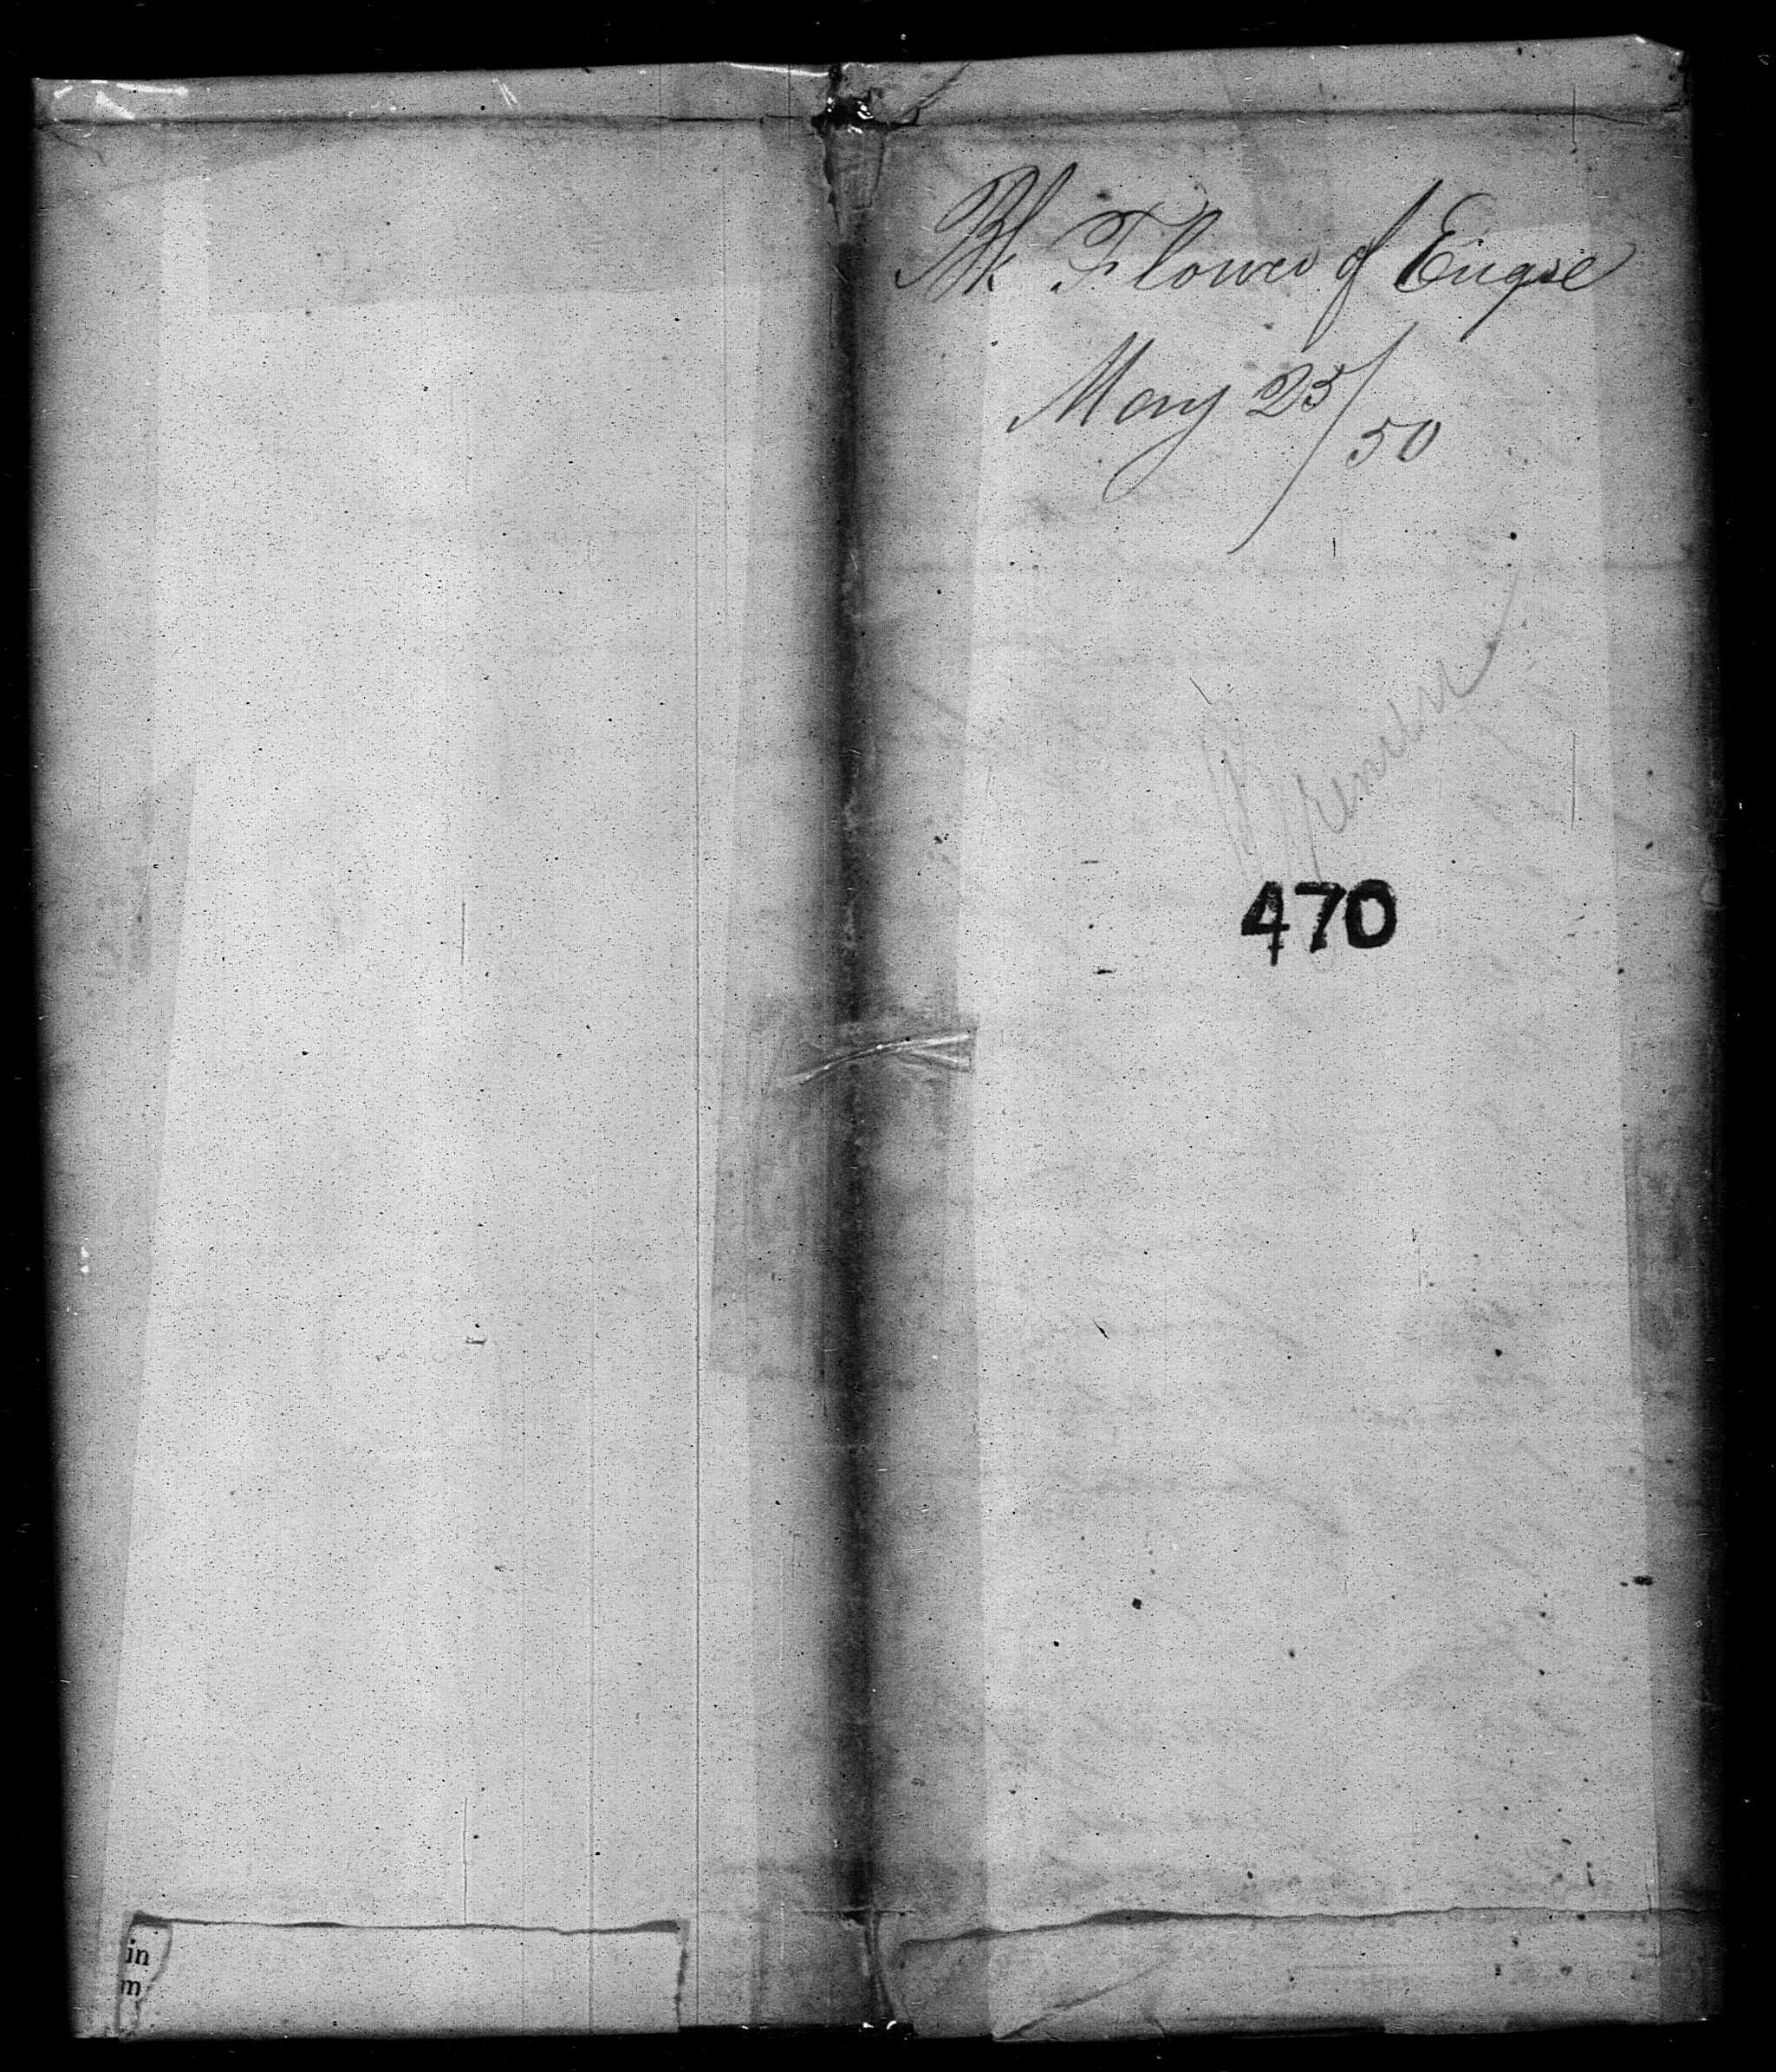 Bk Flower of Enqse
May 25/50
470
in
m